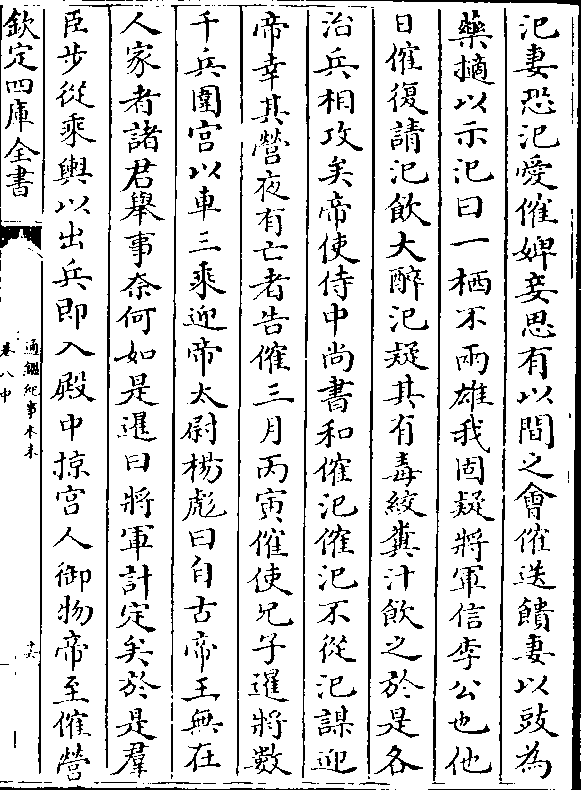 汜妻恐汜愛傕婢妾思有以間之會傕送饋妻以豉為
藥擿以示汜曰一栖不兩雄我固疑將軍信李公也他
日傕復請汜飲大醉汜疑其有毒絞糞汁飲之於是各
治兵相攻矣帝使侍中尚書和傕汜傕汜不從汜謀迎
帝幸其營夜有亡者告傕三月丙寅傕使兄子暹將數
千兵圍宫以車三乘迎帝太尉楊彪曰自古帝王無在
人家者諸君舉事奈何如是暹曰將軍計定矣於是羣
臣步從乘輿以出兵即入殿中掠宫人御物帝至傕營
欽定四庫全書
通鑑紀事本末
卷八中
十六